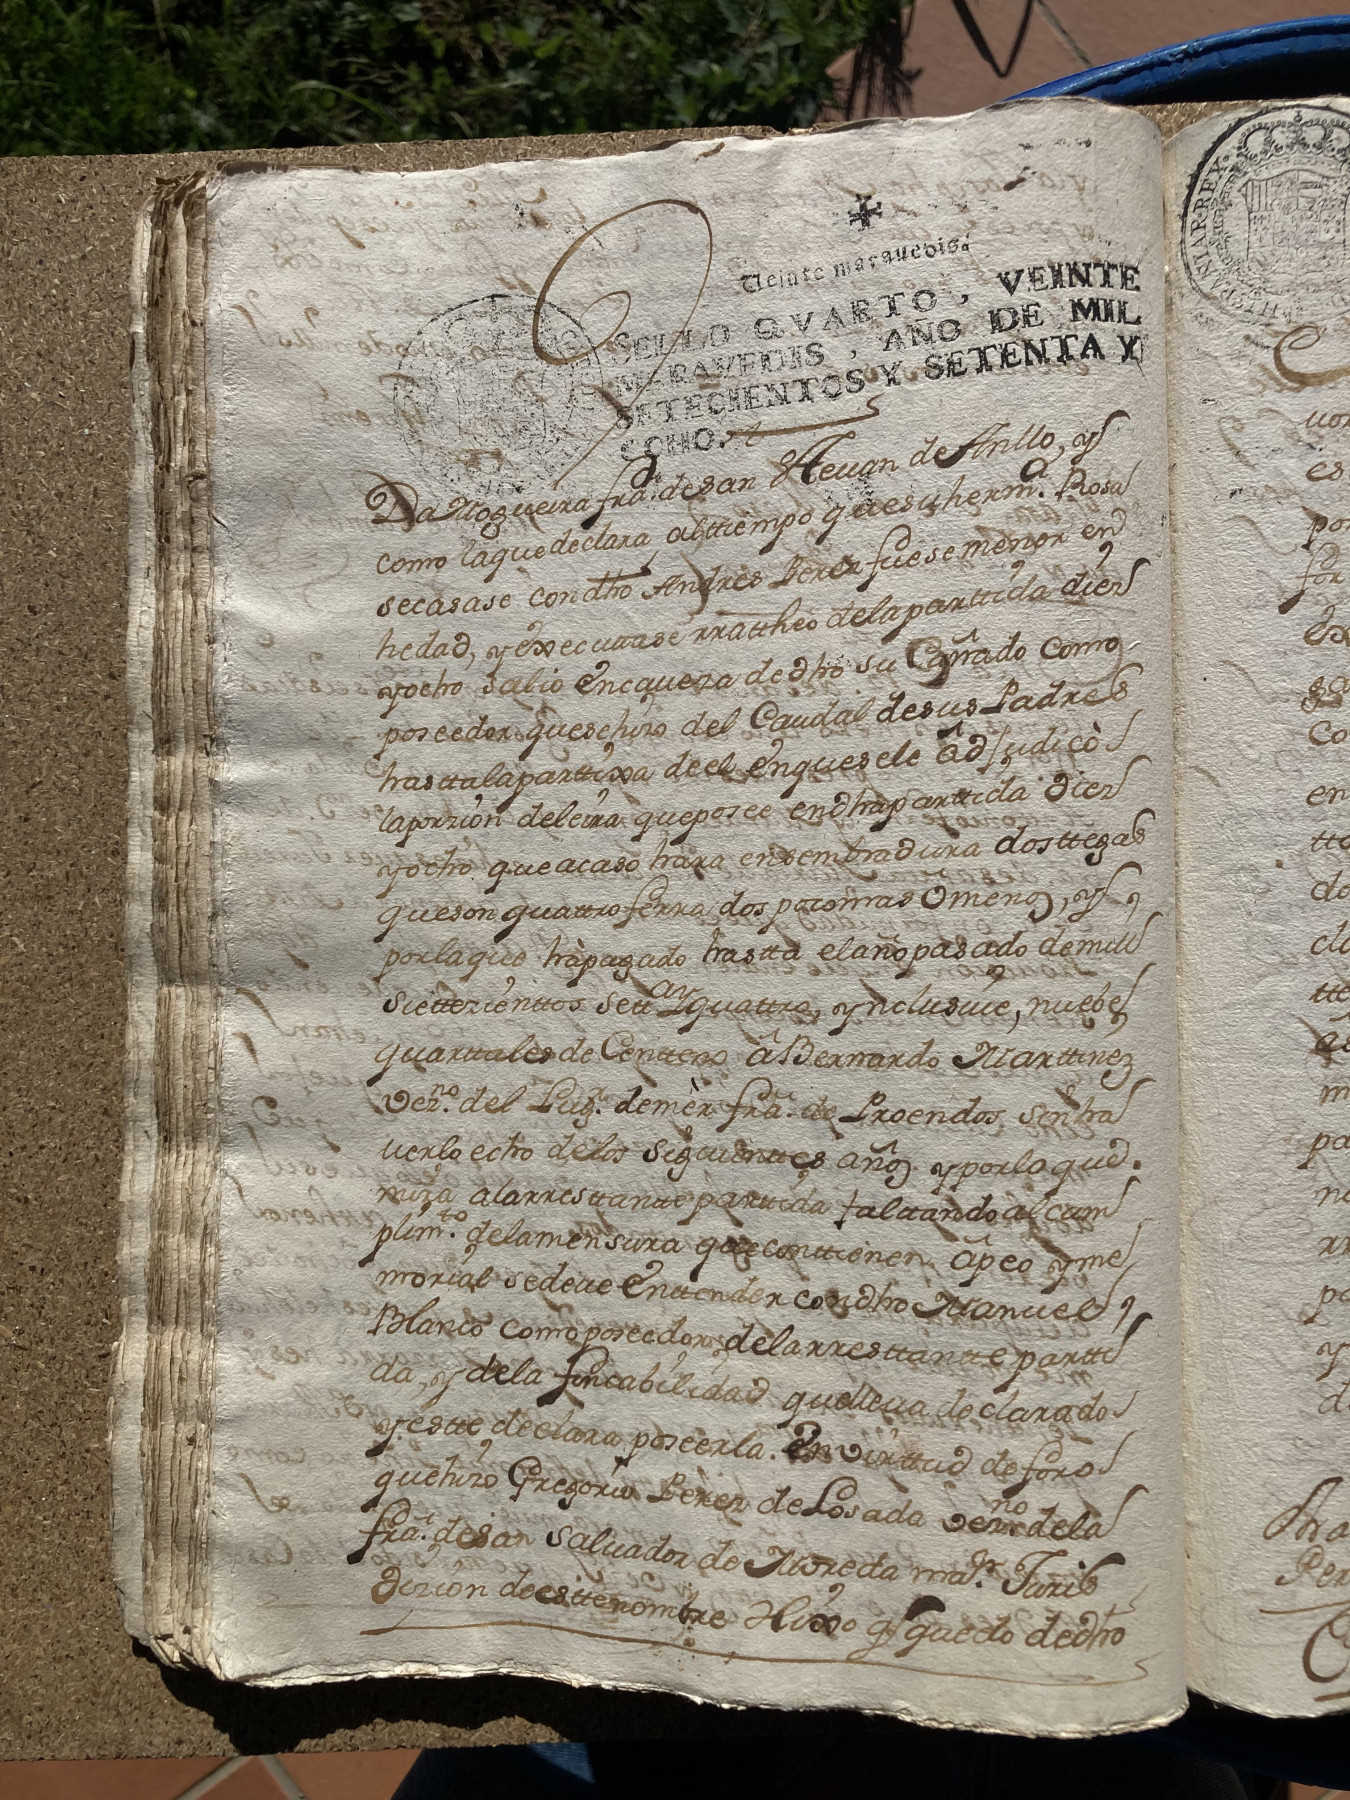 ✠
Veinte marauedis.
SELLO QVARTO, VEINTE
MARAVEDIS, AÑO DE MIL
SETECIENTOS Y SETENTA Y
OCHO.
Da Nogueira frã. de san Steuan de Anllo, y
como laquedeclara alttiempo quesu herm.a Rosa
secasase condho Andres Perez fuesemenor en
hedad, yexecutase rrattheo delaparttida diez
yocho salio encaveza dedho su Cuñado como
poseedor quesehizo del Caudal desus Padres
hasttalaparttixa deel enquesele adjudicò
laporzion deleira queposee endhaparttida diez
yocho queacaso hara ensembradura dosttegas
queson quattroferrados pocomas Omenos, y
porlaque hàpagado hastta elaño pasado demill
setteziénttos settay quattro, ynclusiue, nuebe
quarttales de Centteno à Bernardo Marttinez
vez.no del Lug.r demèr frã. de Proendos, sin ha
uerlo echo delos siguienttes años yporlaqued.
mira alarresttante parttida faltando al cum
plim.to delamensura queconttienen apeo yme
morial sedeue enttender condho Manuel
Blanco comoposeedor delarresttantte partti
da, y dela fincabilidad quelleua declarado
yestte declara poseerla. En virttud deforo
quehizo Gregorio Perez de Losada vezno dela
frã. desan Saluador de Moreda ma.or Juris
dizion deesttenombre Hixo q quedo dedho